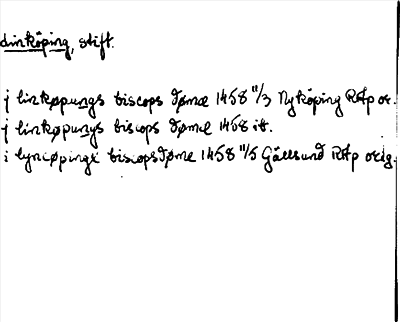 Linköping, stift.
j linkøpungs biscops dømæ 1458 11/3 Nyköping RAp or.
j linkøpungs biscops dømæ 1458 ib.
i lyncøpingx biscopsdøme 1458 11/5 Gällsund RAp orig.